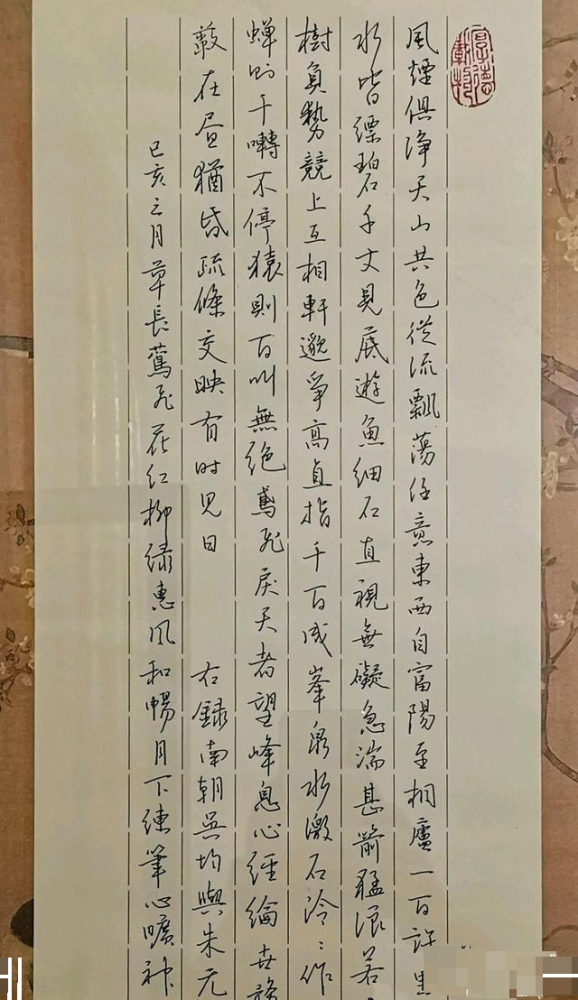 厚德載物
風煙俱淨天山共色從流飄蕩任意東西自富陽至桐廬一百許里
水皆縹碧千丈見底遊魚細石直視無礙急湍甚箭猛浪若
樹負勢競上互相軒邈爭高直指千百成峯泉水激石泠〻作
蟬则千囀不停猿則百叫無绝鳶飛戾天者望峰息心經綸世務
蔽在昼猶昏疏條交映有时见日 右録南朝吳均與朱元
己亥三月草長鶯飛花红柳绿惠風和暢月下练筆心曠神